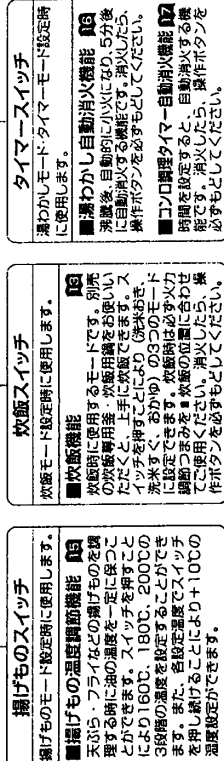 揚げものスイッチ
揚げものモード設定時に使用します。
■揚げもの温度調節機能 15
天ぷら・フライなどの揚げものを調
理する時に油の温度を一定に保つこ
とができます。スイッチを押すこと
により160℃、180℃、200℃の
3段階の温度を設定することができ
ます。また、各設定温度でスイッチ
を押し続けることにより+10℃の
温度設定ができます。
炊飯スイッチ
炊飯モード設定時に使用します。
■炊飯機能 15
炊飯時に使用するモードです。別売
の炊飯専用釜・炊飯用鍋をお使いい
ただくと、上手に炊飯できます。ス
イッチを押すことにより（洗米おき、
洗米すぐ、おかゆ）の3つのモード
に設定できます。炊飯時は必ず火力
調節つまみを、炊飯の位置に合わせ
てご使用ください。消火したら、操
作ボタンを必ずもどしてください。
タイマースイッチ
湯わかしモード・タイマーモード設定時
に使用します。
■湯わかし自動消火機能 16
沸騰後、自動的に小火になり、5分後
に自動消火する機能です。消火したら、
操作ボタンを必ずもどしてください。
■コンロ調理タイマー自動消火機能 17
時間を設定すると、自動消火する機
能です。消火したら、操作ボタンを
必ずもどしてください。